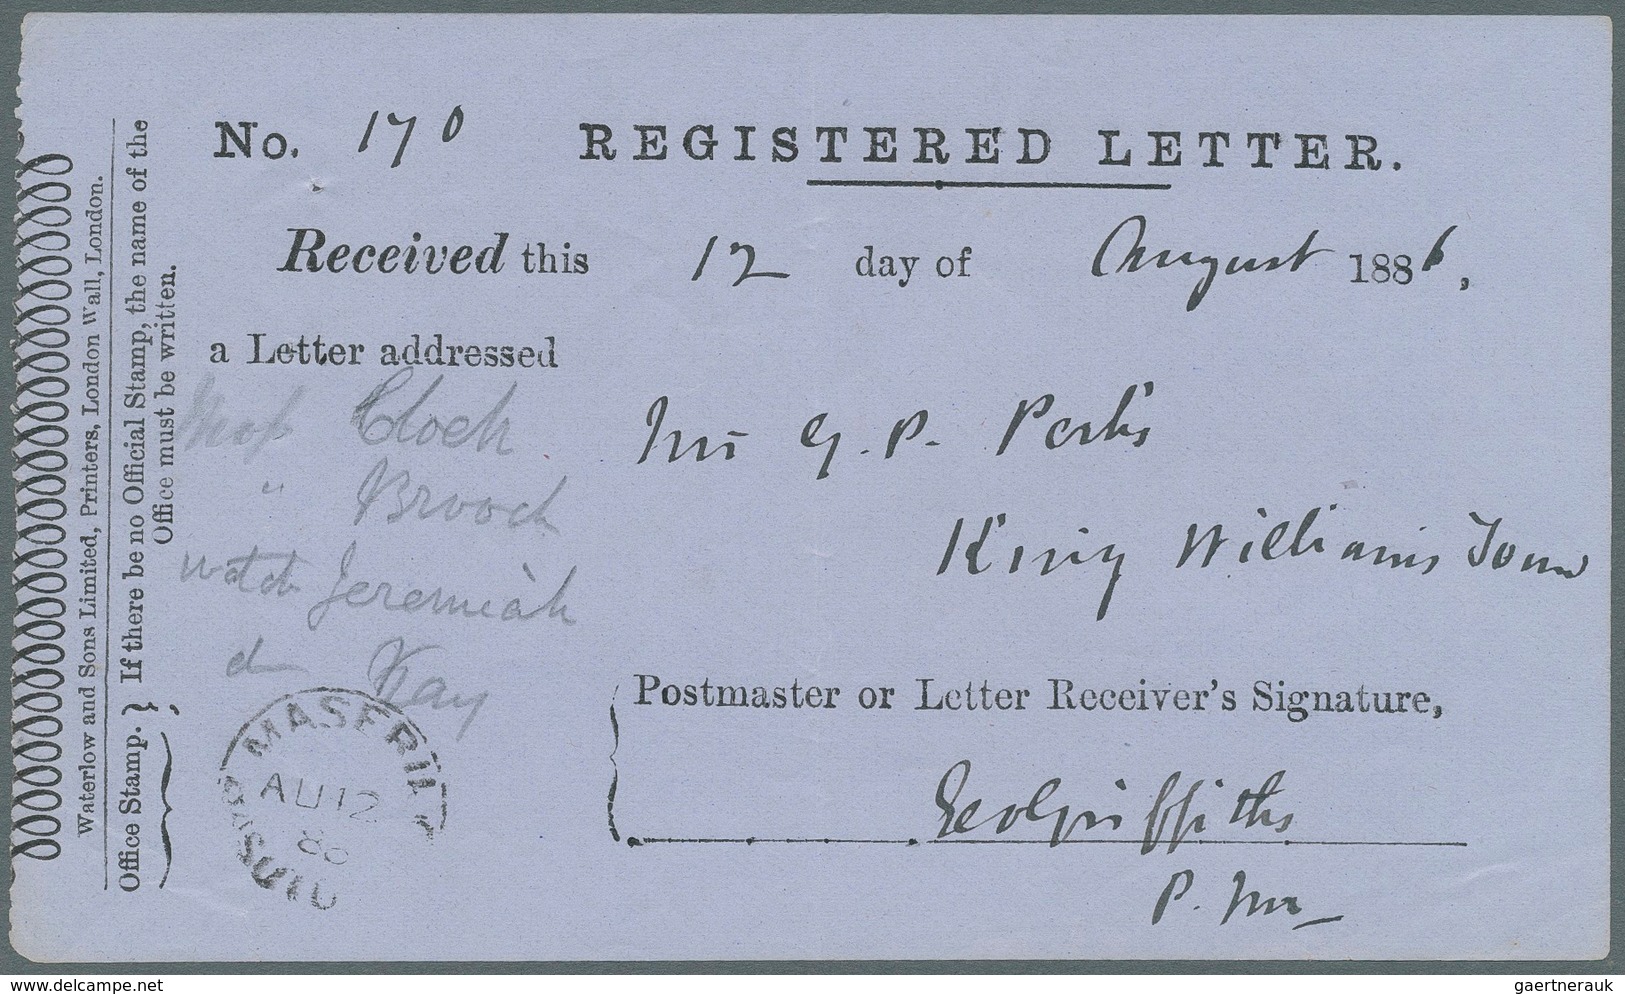 No. 170 REGISTERED LETTER.
Received this 12 day of August 1886,
a Letter addressed
Mr G. P. Perks
King Williams Town
Clock
" Brooch
watch Jeremiah
do Kay
Postmaster or Letter Receiver's Signature,
Geo Griffiths
P. Mr
MASERU
AU 12
86
BASUTO
Waterlow and Sons Limited, Printers, London Wall, London.
Office Stamp. } If there be no Official Stamp, the name of the
Office must be written.
www.delcampe.net
gaertnerauk